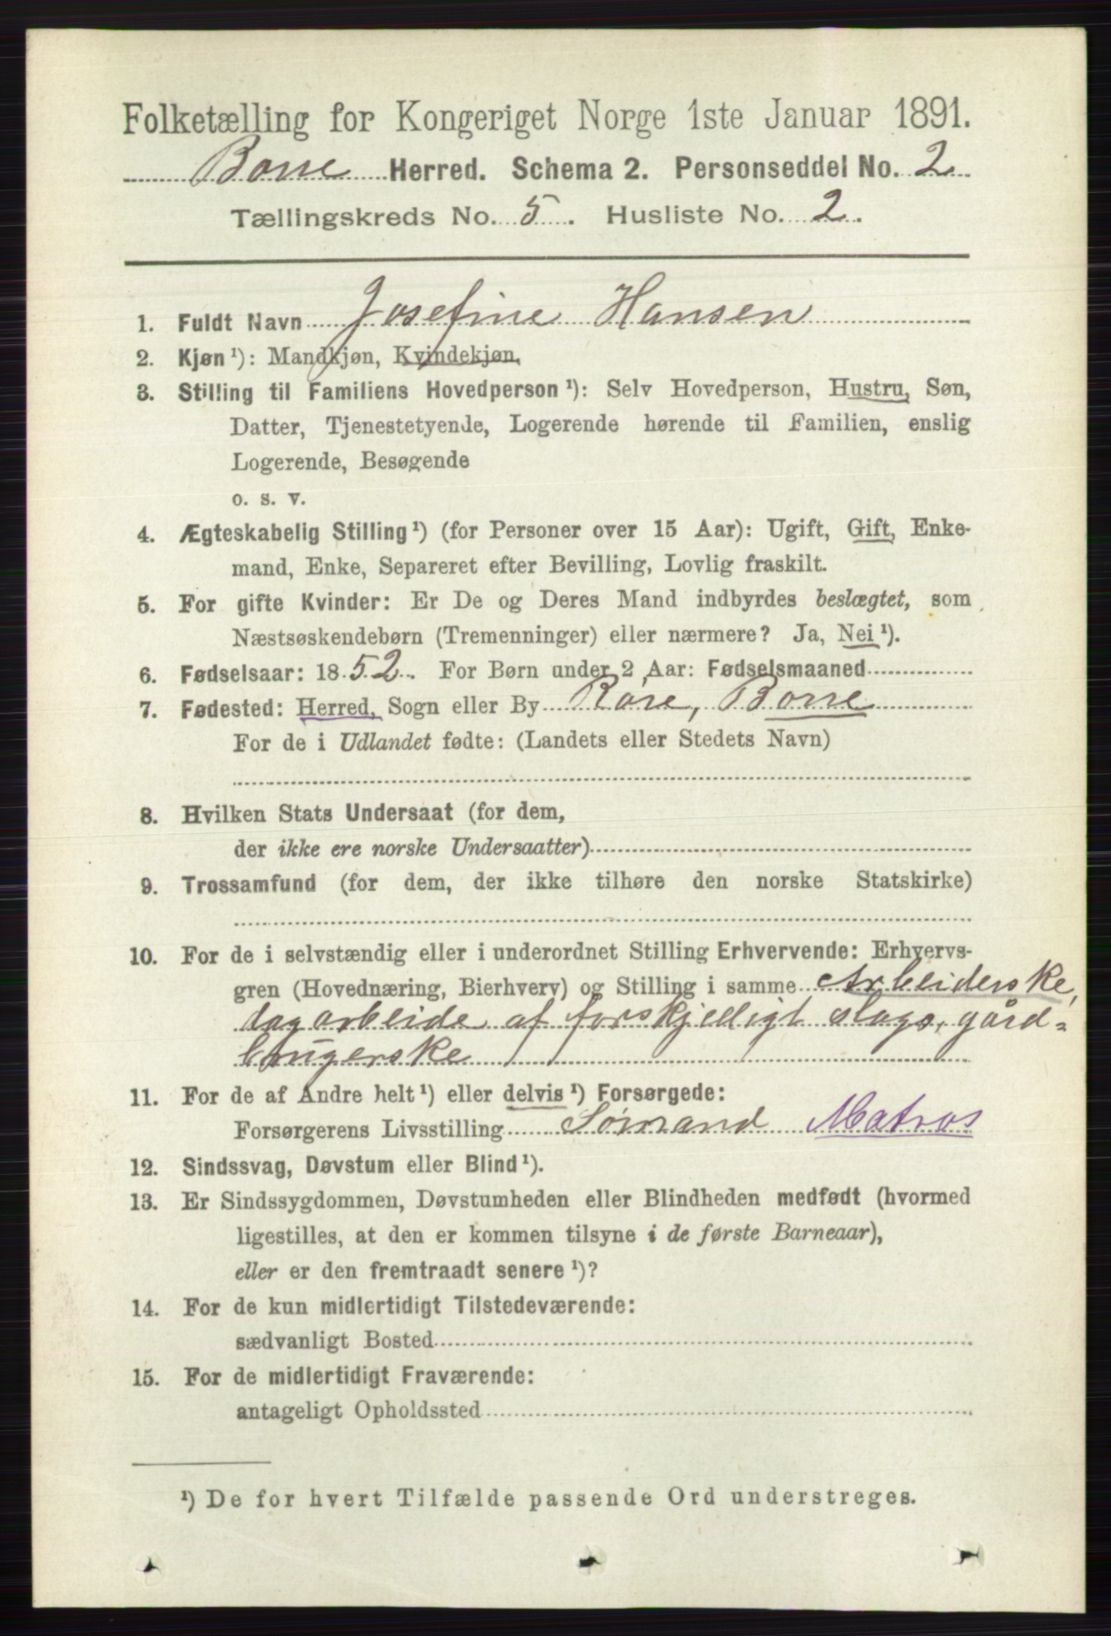 Folketælling for Kongeriget Norge 1ste Januar 1891.
Borre Herred. Schema 2. Personseddel No. 2
Tællingskreds No. 5. Husliste No. 2.
1. Fuldt Navn Josefine Hansen
2. Kjøn ¹): Mandkjøn, Kvindekjøn.
3. Stilling til Familiens Hovedperson ¹): Selv Hovedperson, Hustru, Søn,
Datter, Tjenestetyende, Logerende hørende til Familien, enslig
Logerende, Besøgende
o. s. v.
4. Ægteskabelig Stilling ¹) (for Personer over 15 Aar): Ugift, Gift, Enke-
mand, Enke, Separeret efter Bevilling, Lovlig fraskilt.
5. For gifte Kvinder: Er De og Deres Mand indbyrdes beslægtet, som
Næstsøskendebørn (Tremenninger) eller nærmere? Ja, Nei ¹).
6. Fødselsaar: 1852. For Børn under 2 Aar: Fødselsmaaned
7. Fødested: Herred, Sogn eller By Rore, Borre
For de i Udlandet fødte: (Landets eller Stedets Navn)
8. Hvilken Stats Undersaat (for dem,
der ikke ere norske Undersaatter)
9. Trossamfund (for dem, der ikke tilhøre den norske Statskirke)
10. For de i selvstændig eller i underordnet Stilling Erhvervende: Erhvervs-
gren (Hovednæring, Bierhverv) og Stilling i samme Arbeiderske,
tag arbeide af forskjelligt slags, gård=
brugerske
11. For de af Andre helt ¹) eller delvis ¹) Forsørgede:
Forsørgerens Livsstilling Sømand Matros
12. Sindssvag, Døvstum eller Blind ¹).
13. Er Sindssygdommen, Døvstumheden eller Blindheden medfødt (hvormed
ligestilles, at den er kommen tilsyne i de første Barneaar),
eller er den fremtraadt senere ¹)?
14. For de kun midlertidigt Tilstedeværende:
sædvanligt Bosted
15. For de midlertidigt Fraværende:
antageligt Opholdssted
¹) De for hvert Tilfælde passende Ord understreges.